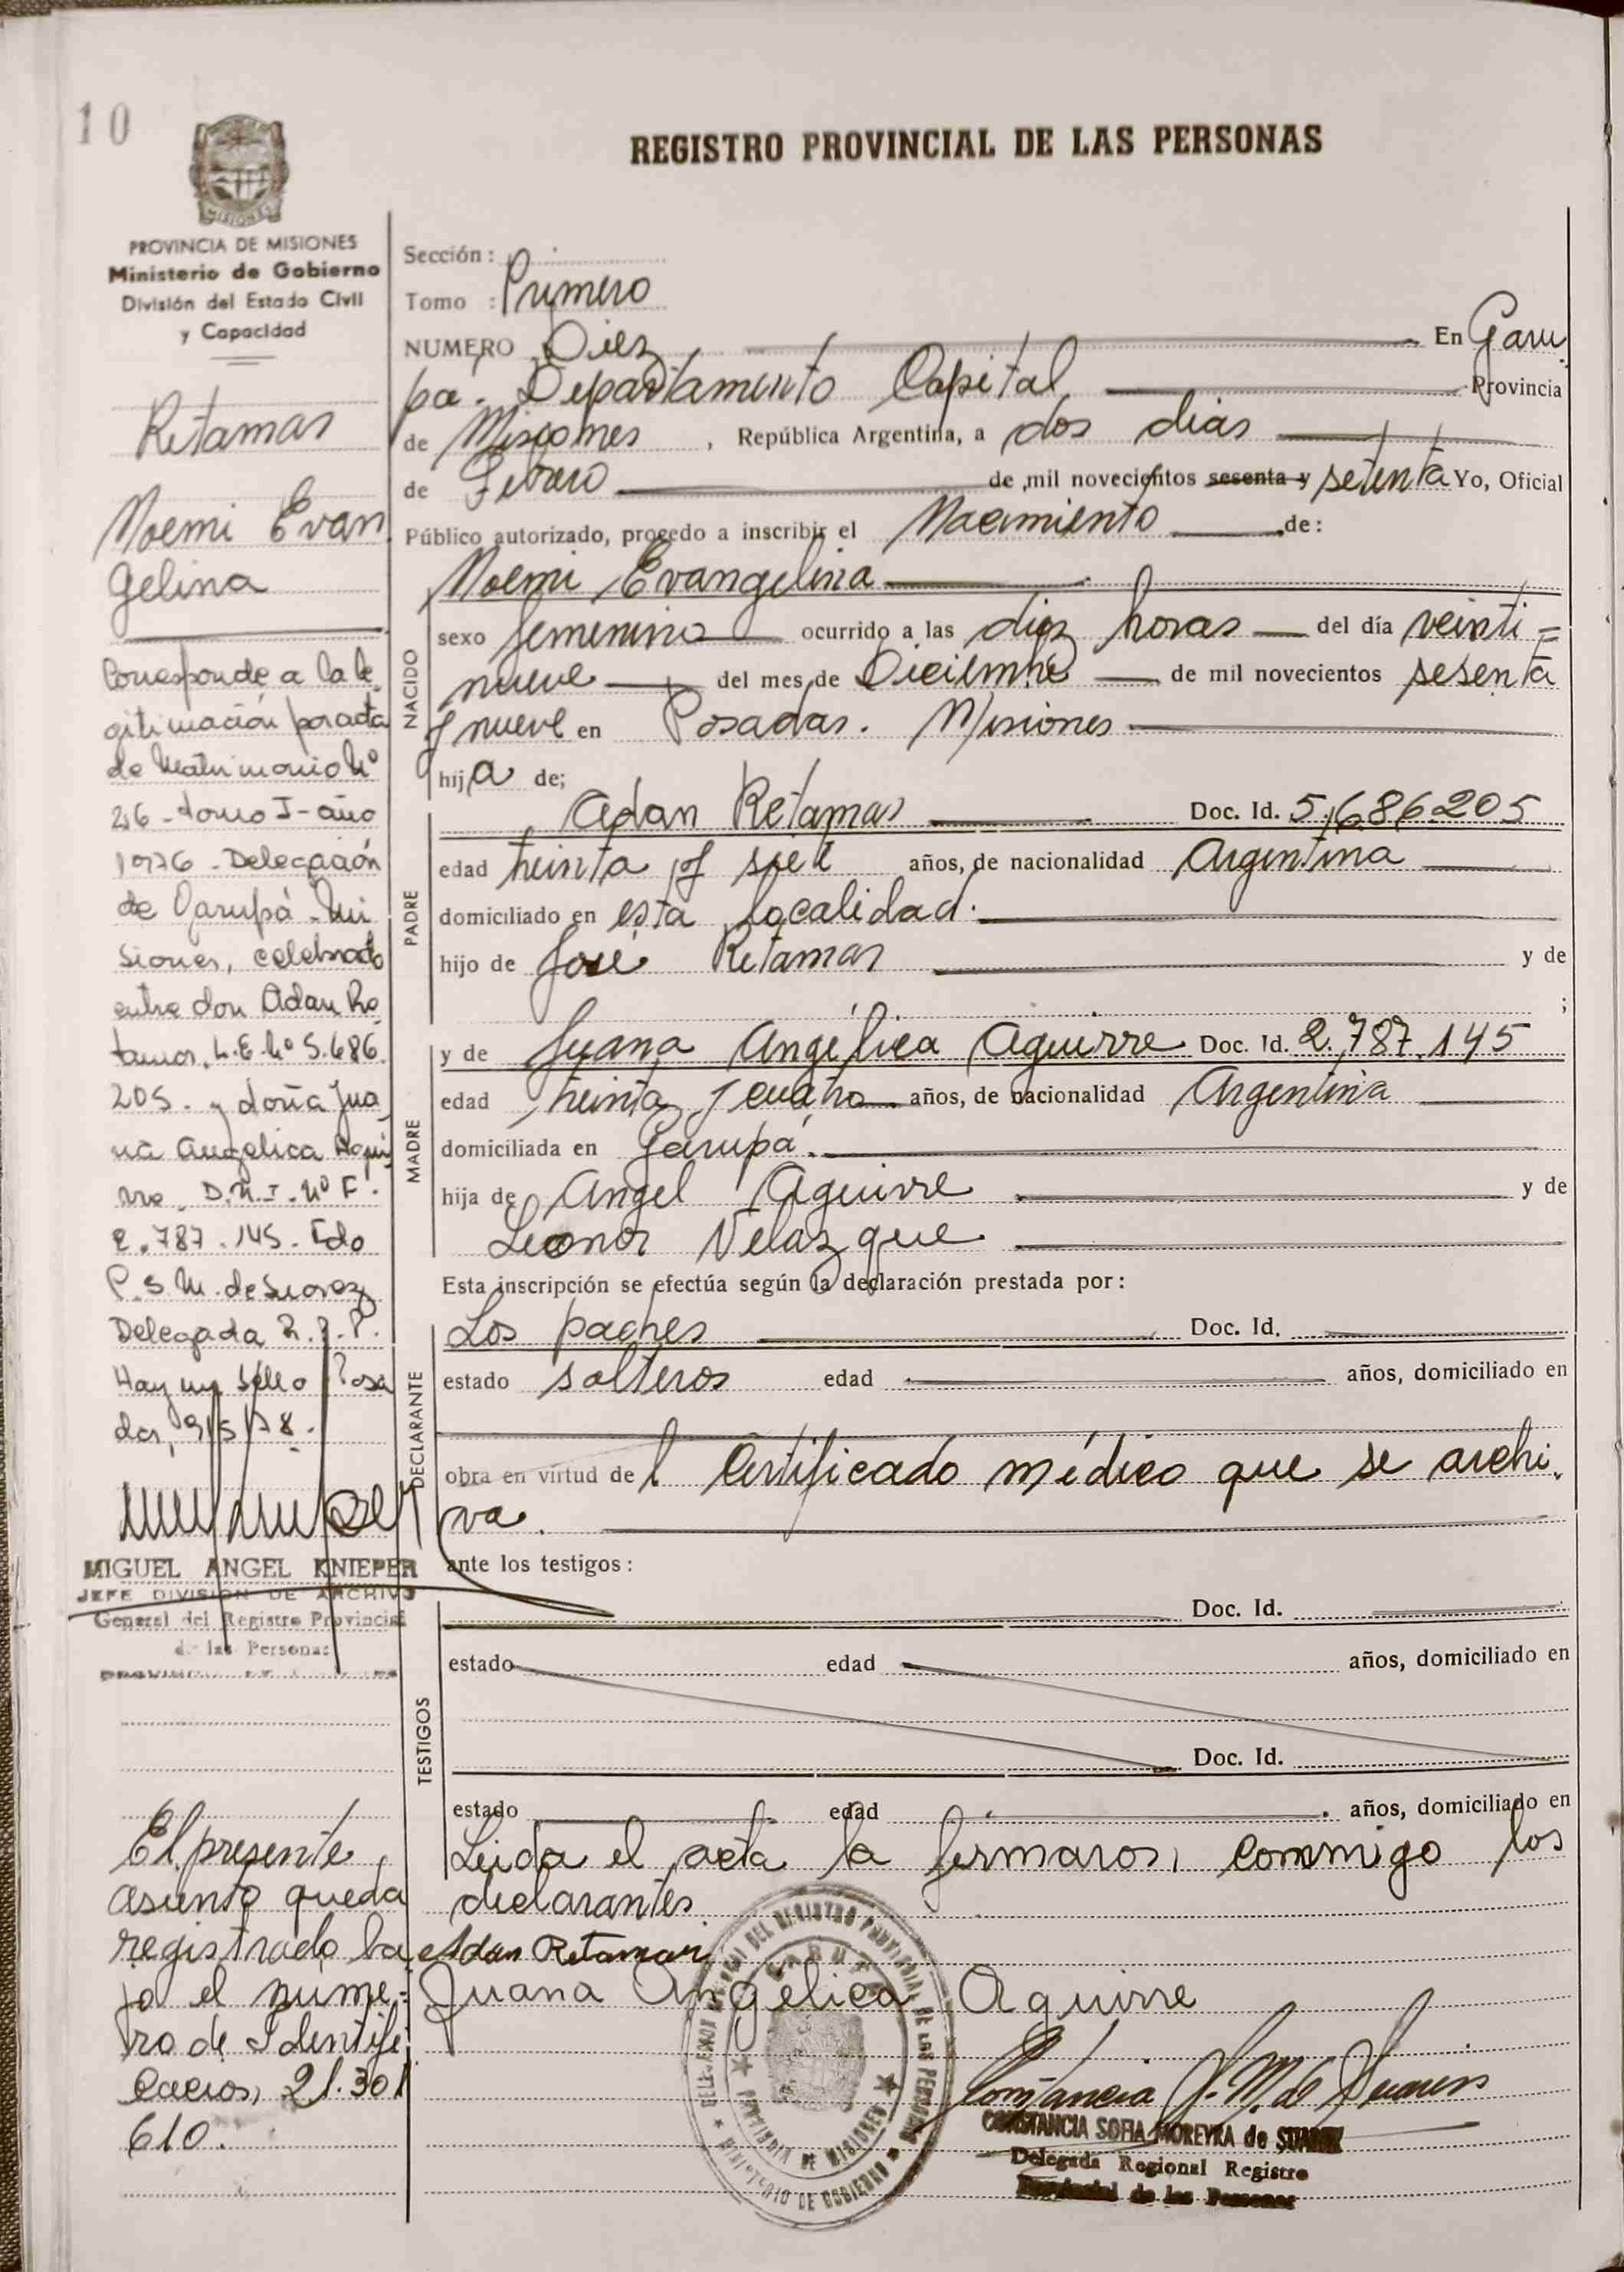 10
REGISTRO PROVINCIAL DE LAS PERSONAS
MISIONES
PROVINCIA DE MISIONES
Ministerio de Gobierno
División del Estado Civil
y Capacidad
Retamas
Noemi Evan
gelina
Corresponde a la le
gitimación por acta
de Matrimonio Nº
26 - tomo I - año
1976 - Delegación
de Garupá - Mi
siones, celebrado
entre don Adan Re
tamas, L.E. Nº 5.686.
205. y doña Jua
na Angelica Agui
rre, D.N.I. Nº F.
2.787.145. Fdo
C.S.M. de Suarez
Delegada R.P.P.
Hay un Sello Posa
das, 9/5/78.
MIGUEL ANGEL KNIEPER
JEFE DIVISION DE ARCHIVO
General del Registro Provincial
de las Personas
El presente
asunto queda
registrado ba
jo el núme-
ro de Identifi
cación, 21.301
610.
Sección:
Tomo : Primero
NUMERO Diez En Garu
pá. Departamento Capital Provincia
de Misiones, República Argentina, a dos dias
de Febrero de mil novecientos sesenta y setenta Yo, Oficial
Público autorizado, procedo a inscribir el Nacimiento de:
NACIDO
Noemi Evangelina
sexo femenino ocurrido a las diez horas del día veinti=
nueve del mes de Diciembre de mil novecientos sesenta
y nueve en Posadas. Misiones
hija de;
PADRE
Adan Retamas Doc. Id. 5.686.205
edad treinta y siete años, de nacionalidad Argentina
domiciliado en esta localidad.
hijo de José Retamas y de
;
MADRE
y de Juana Angélica Aguirre Doc. Id. 2.787.145
edad treinta y cuatro años, de nacionalidad Argentina
domiciliada en Garupá.
hija de Angel Aguirre y de
Leonor Velazque
Esta inscripción se efectúa según la declaración prestada por:
DECLARANTE
Los padres Doc. Id.
estado solteros edad años, domiciliado en
obra en virtud del Certificado médico que se archi-
va.
ante los testigos:
TESTIGOS
Doc. Id.
estado edad años, domiciliado en
Doc. Id.
estado edad años, domiciliado en
Leida el acta la firmaron, conmigo los
declarantes
Adan Retamar
Juana Angélica Aguirre
GARUPA
PROVINCIA DE MISIONES
MINISTERIO DE GOBIERNO
Constancia S. M. de Suarez
CONSTANCIA SOFIA MOREYRA de SUAREZ
Delegada Regional Registro
Provincial de las Personas